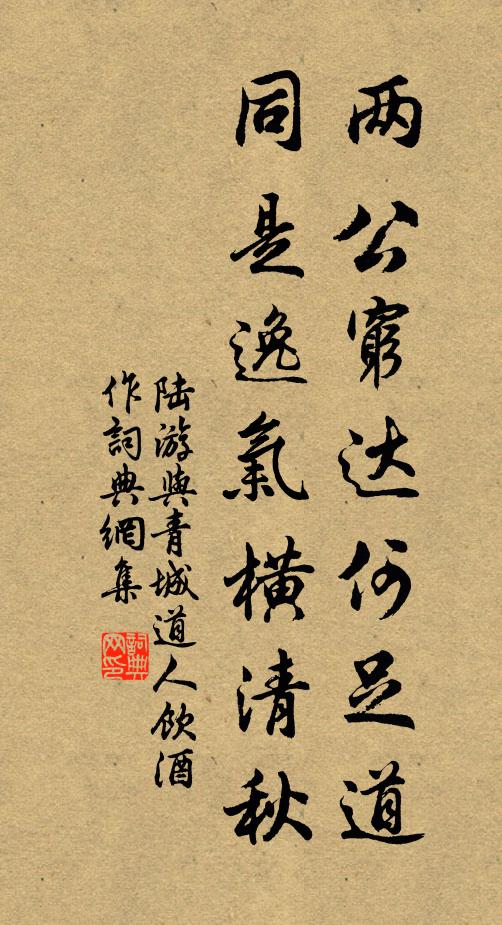 两公窮达何足道
同是逸氣橫清秋
陆游與青城道人飲酒
作詞典網集
詞典
网印